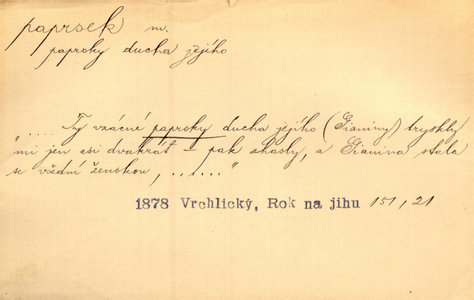 paprsek m.
paprsky ducha jejího
„.... Ty vzácné paprsky ducha jejího (Gianiny) tryskly
mi jen asi dvakrát – pak zhasly, a Gianina stala
se všední ženskou, ......."
1878 Vrchlický, Rok na jihu 151, 21